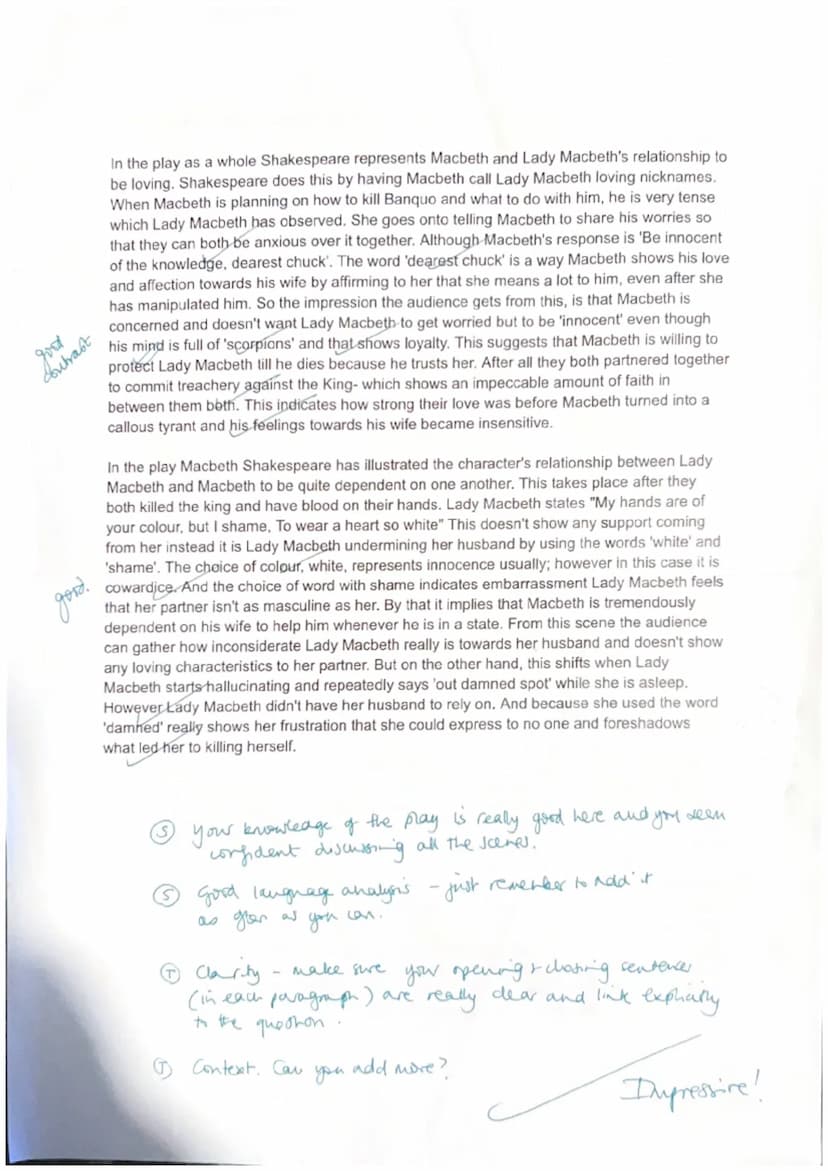 In the play as a whole Shakespeare represents Macbeth and Lady Macbeth's relationship to
be loving. Shakespeare does this by having Macbeth call Lady Macbeth loving nicknames.
When Macbeth is planning on how to kill Banquo and what to do with him, he is very tense
which Lady Macbeth has observed. She goes onto telling Macbeth to share his worries so
that they can both be anxious over it together. Although Macbeth's response is 'Be innocent
of the knowledge, dearest chuck'. The word 'dearest chuck' is a way Macbeth shows his love
and affection towards his wife by affirming to her that she means a lot to him, even after she
has manipulated him. So the impression the audience gets from this, is that Macbeth is
concerned and doesn't want Lady Macbeth to get worried but to be 'innocent' even though
good contrast
his mind is full of 'scorpions' and that shows loyalty. This suggests that Macbeth is willing to
protect Lady Macbeth till he dies because he trusts her. After all they both partnered together
to commit treachery against the King- which shows an impeccable amount of faith in
between them both. This indicates how strong their love was before Macbeth turned into a
callous tyrant and his feelings towards his wife became insensitive.
In the play Macbeth Shakespeare has illustrated the character's relationship between Lady
Macbeth and Macbeth to be quite dependent on one another. This takes place after they
both killed the king and have blood on their hands. Lady Macbeth states "My hands are of
your colour, but I shame, To wear a heart so white" This doesn't show any support coming
from her instead it is Lady Macbeth undermining her husband by using the words 'white' and
'shame'. The choice of colour, white, represents innocence usually; however in this case it is
good.
cowardice. And the choice of word with shame indicates embarrassment Lady Macbeth feels
that her partner isn't as masculine as her. By that it implies that Macbeth is tremendously
dependent on his wife to help him whenever he is in a state. From this scene the audience
can gather how inconsiderate Lady Macbeth really is towards her husband and doesn't show
any loving characteristics to her partner. But on the other hand, this shifts when Lady
Macbeth starts hallucinating and repeatedly says 'out damned spot' while she is asleep.
However Lady Macbeth didn't have her husband to rely on. And because she used the word
'damned' really shows her frustration that she could express to no one and foreshadows
what led her to killing herself.
Ⓢ Your knowledge of the play is really good here and you seem
confident discussing all the scenes.
Ⓢ Good language analysis - just remember to add it
as often as you can.
Ⓣ Clarity - make sure your opening & closing sentences
(in each paragraph) are really clear and link explicitly
to the question.
Ⓣ Context. Can you add more?
Impressive!